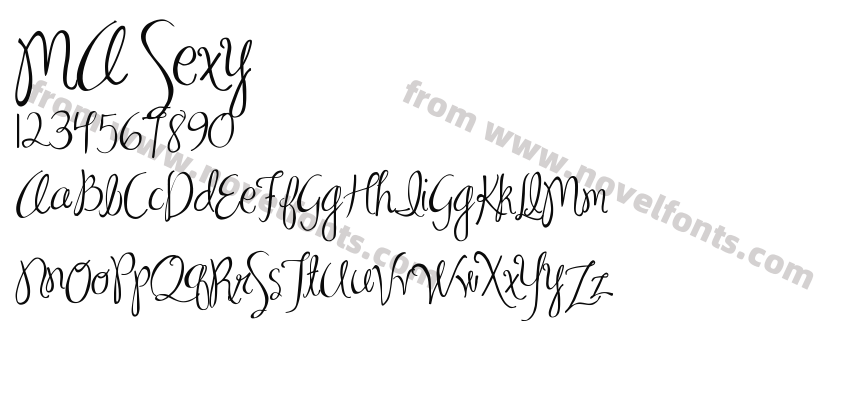 MA Sexy
1234567890
AaBbCcDdEeFfGgHhIiGgKkLlMm
NnOoPpQqRrSsTtUuVvWwXxYyZz
from www.novelfonts.com
from www.novelfonts.com